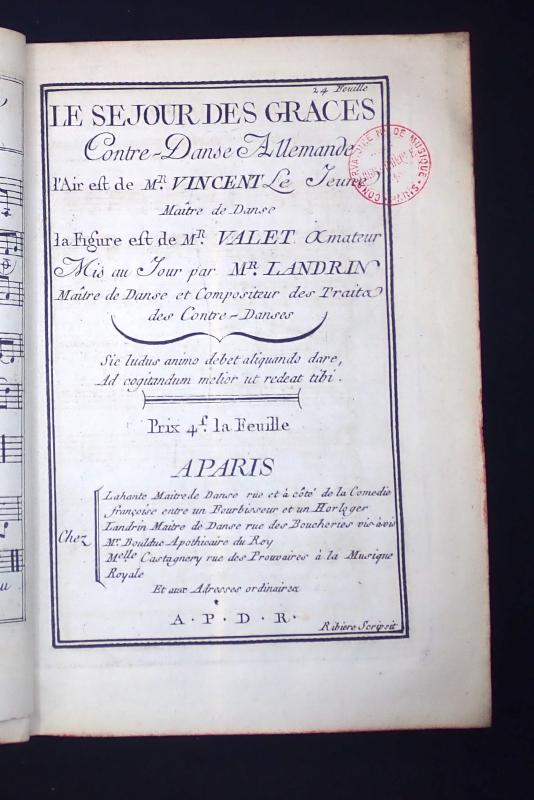 24 Feuille
LE SEJOUR DES GRACES
Contre-Danse Allemande
l'Air est de MR. VINCENT Le Jeune
Maître de Danse
la Figure est de MR. VALET Amateur
Mis au Jour par MR. LANDRIN
Maître de Danse et Compositeur des Traits
des Contre-Danses
Sic ludus animo debet aliquando dare,
Ad cogitandum melior ut redeat tibi.
Prix 4f. la Feuille
A PARIS
Chez
Lahante Maitre de Danse rue et à côté de la Comedie
françoise entre un Fourbisseur et un Horloger
Landrin Maitre de Danse rue des Boucheries vis à vis
Mr. Boulduc Apothicaire du Roy
Melle Castagnery rue des Prouvaires à la Musique
Royale
Et aux Adresses ordinaires
A.P.D.R.
Ribiere Scripsit
CONSERVATOIRE NAL DE MUSIQUE